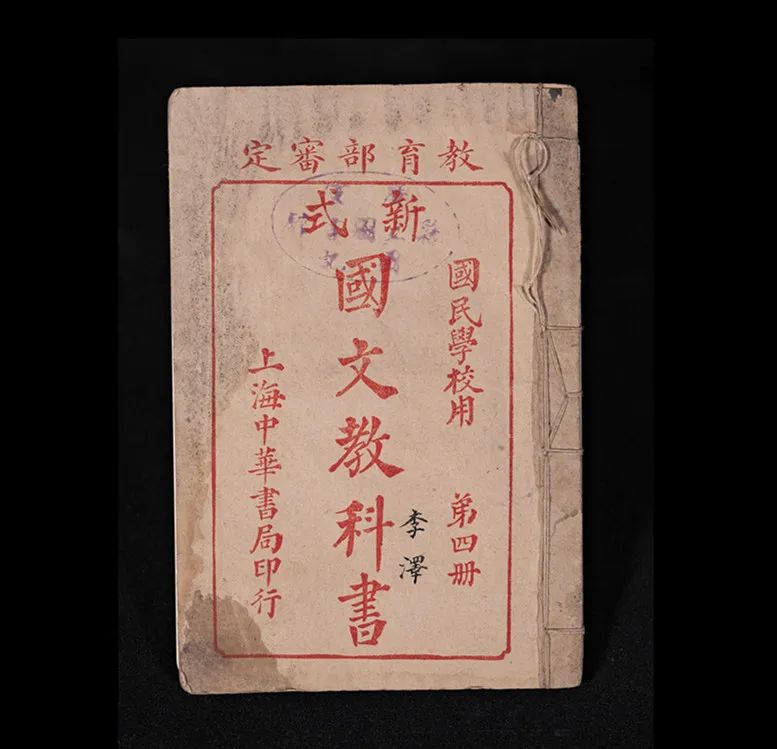 教育部審定
新式
國民學校用 第四册
國文教科書
李澤
上海中華書局印行